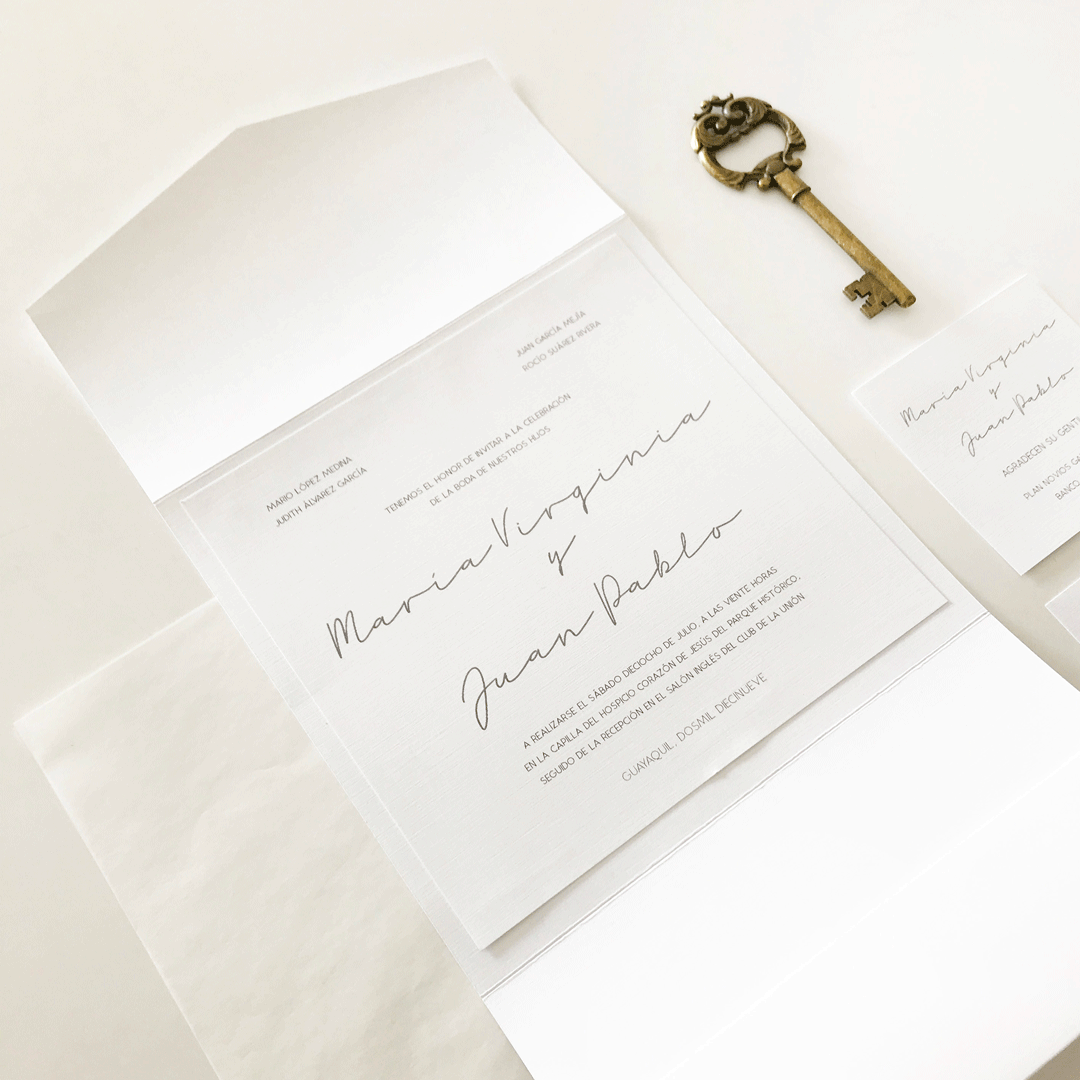 MARIO LÓPEZ MEDINA
JUDITH ÁLVAREZ GARCÍA
JUAN GARCÍA MEJÍA
ROCÍO SUÁREZ RIVERA
TENEMOS EL HONOR DE INVITAR A LA CELEBRACIÓN
DE LA BODA DE NUESTROS HIJOS
María Virginia
y
Juan Pablo
A REALIZARSE EL SÁBADO DIECIOCHO DE JULIO, A LAS VIENTE HORAS
EN LA CAPILLA DEL HOSPICIO CORAZÓN DE JESÚS DEL PARQUE HISTÓRICO,
SEGUIDO DE LA RECEPCIÓN EN EL SALÓN INGLÉS DEL CLUB DE LA UNIÓN
GUAYAQUIL, DOSMIL DIECINUEVE
María Virginia
y
Juan Pablo
AGRADECEN SU
PLAN NOVIOS
BANCO